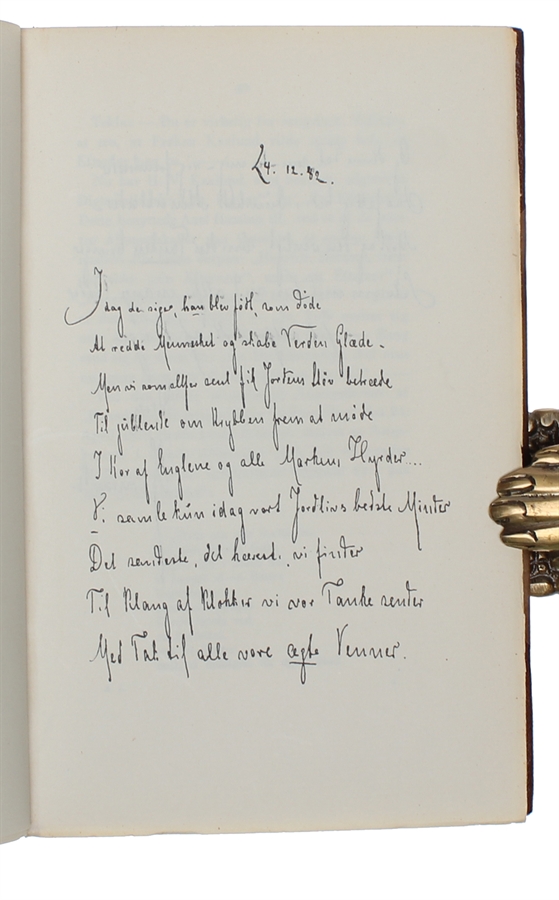 24. 12. 82.
Idag de siger, han blev född, som döde
At redde Mennesket og skabe Verden Glæde.
Men vi som altfor sent fik Jordens Støv betræde
Til jublende om Krybben frem at møde
I Kor af Englene og alle Markens Hyrder....
Vi samle kun idag vort Jordlivs bedste Minder
Det sandeste, det kæreste, vi finder
Til Klang af Klokker vi vor Tanke sender
Med Tak til alle vore ægte Venner.